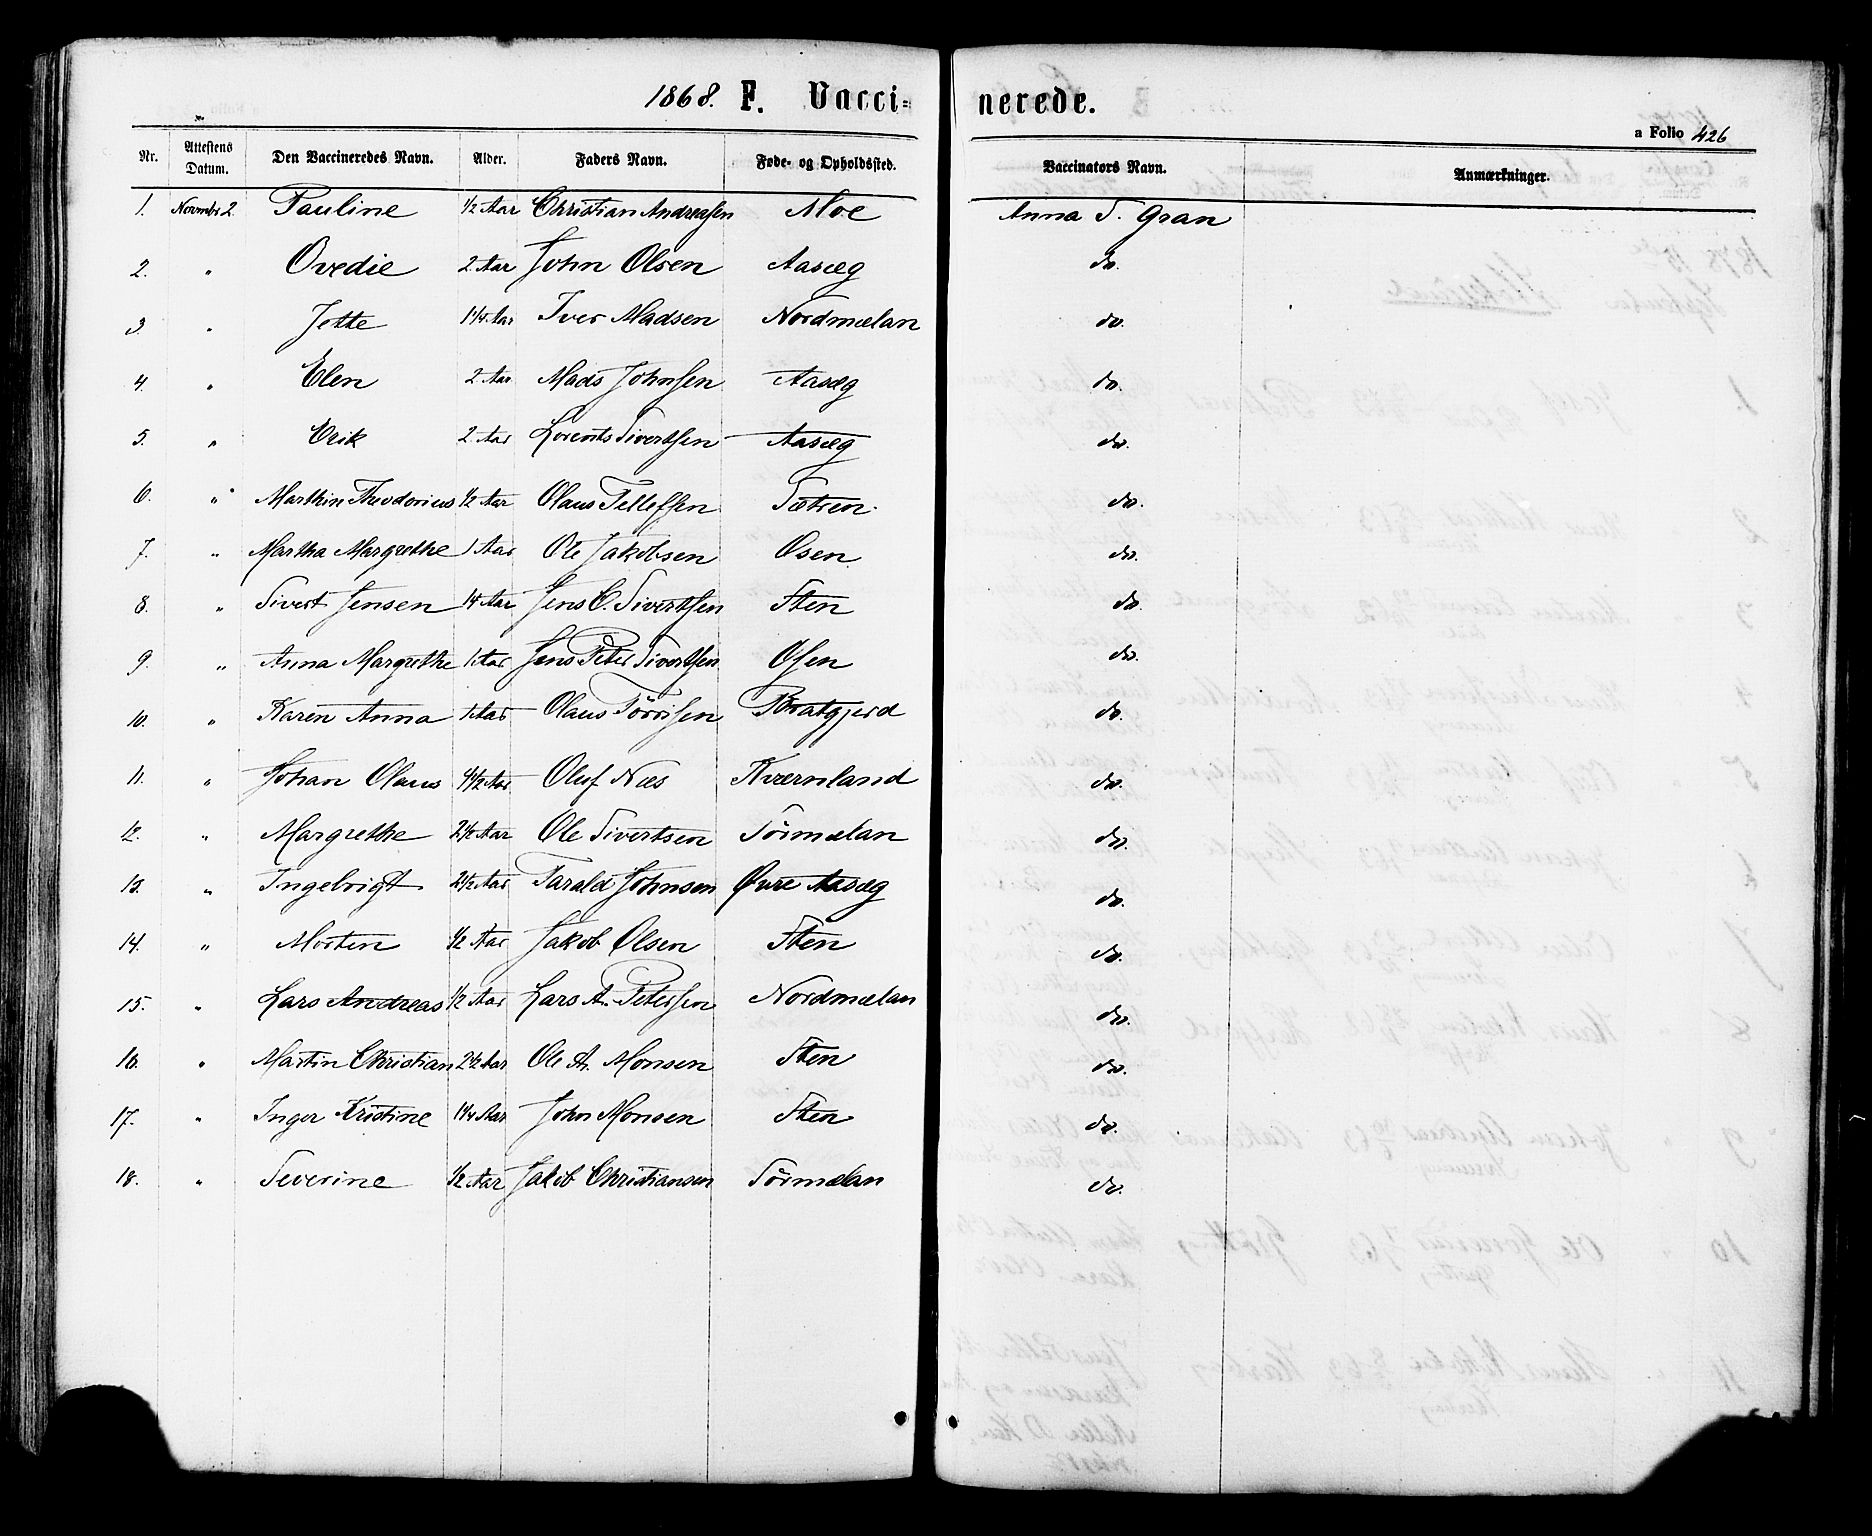 1868. F. Vaccinerede.
a Folio 426
Nr. Attestens Datum. Den Vaccineredes Navn. Alder. Faders Navn. Føde- og Opholdssted. Vaccinators Navn. Anmærkninger.
1. Novmbr 2. Pauline 1/2 Aar Christian Andreassen Moe Anna S. Gran
2. " Ovedie 2 Aar John Olsen Aasæg do.
3. " Jette 1 1/4 Aar Iver Madsen Nordmælan do.
4. " Elen 2 Aar Mads Johnsen Aasæg do.
5. " Erik 2 Aar Lorents Sivertsen Aasæg do.
6. " Marthin Theodorius 1/2 Aar Olaus Tellefsen Sætren do.
7. " Martha Margrethe 1 Aar Ole Jakobsen Osen do.
8. " Sivert Jensen 14 Aar Jens C. Sivertsen Sten do.
9. " Anna Margrethe 1 Aar Jens Peter Sivertsen Osen do.
10. " Karen Anna 1 Aar Olaus Tørrisen Bratgjerd do.
11. " Johan Olaus 4 1/2 Aar Oluf Næs Kværnland do.
12. " Margrethe 2 1/2 Aar Ole Sivertsen Sörmælan do.
13. " Ingebrigt 2 1/2 Aar Tarald Johnsen Øvre Aasæg do.
14. " Morten 1/2 Aar Jakob Olsen Sten do.
15. " Lars Andreas 1/2 Aar Lars A. Petersen Nordmælan do.
16. " Martin Christian 2 1/2 Aar Ole A. Monsen Sten do.
17. " Inger Kristine 1 1/4 Aar John Monsen Sten do.
18. " Severine 1/2 Aar Jakob Christiansen Sörmælan do.